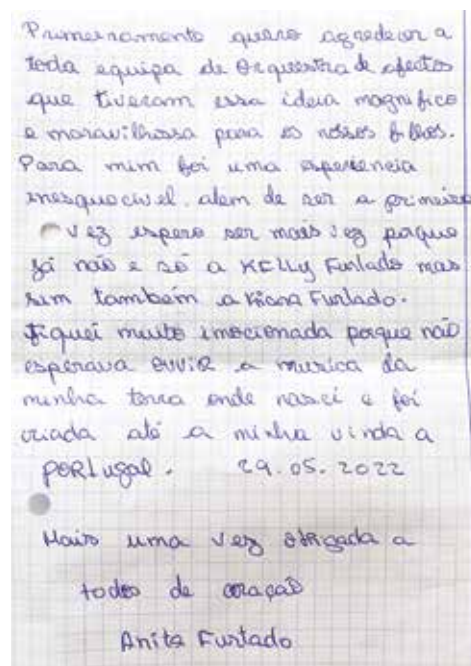 Primeiramente quero agradecer a
toda equipa de Orquestra de afectos
que tiveram essa ideia magnifico
e maravilhossa para os nossos filhos.
Para mim foi uma experiencia
inesquecivel. alem de ser a primeira
vez espero ser mais vez porque
já não e só a KELLY Furtado mas
sim também a Kiara Furtado.
Fiquei muito imocionada porque não
esperava ouvir a musica da
minha terra onde nasci e foi
criada até a minha vinda a
PORtugal. 29.05.2022
Mais uma vez obrigada a
todos de coração
Anita Furtado